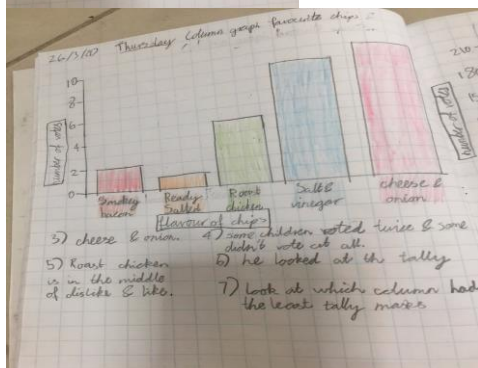 26/3/20 Thursday Column graph favourite chips
10
8
6
4
2
0
number of votes
Smokey bacon
Ready Salted
Roast chicken
Salt & vinegar
cheese & onion
flavour of chips
210
180
number of votes
3) cheese & onion.
4) some children voted twice & some didn't vote at all.
5) Roast chicken
is in the middle
of dislike & like.
6) he looked at th tally
7) Look at which column had
the least tally marks